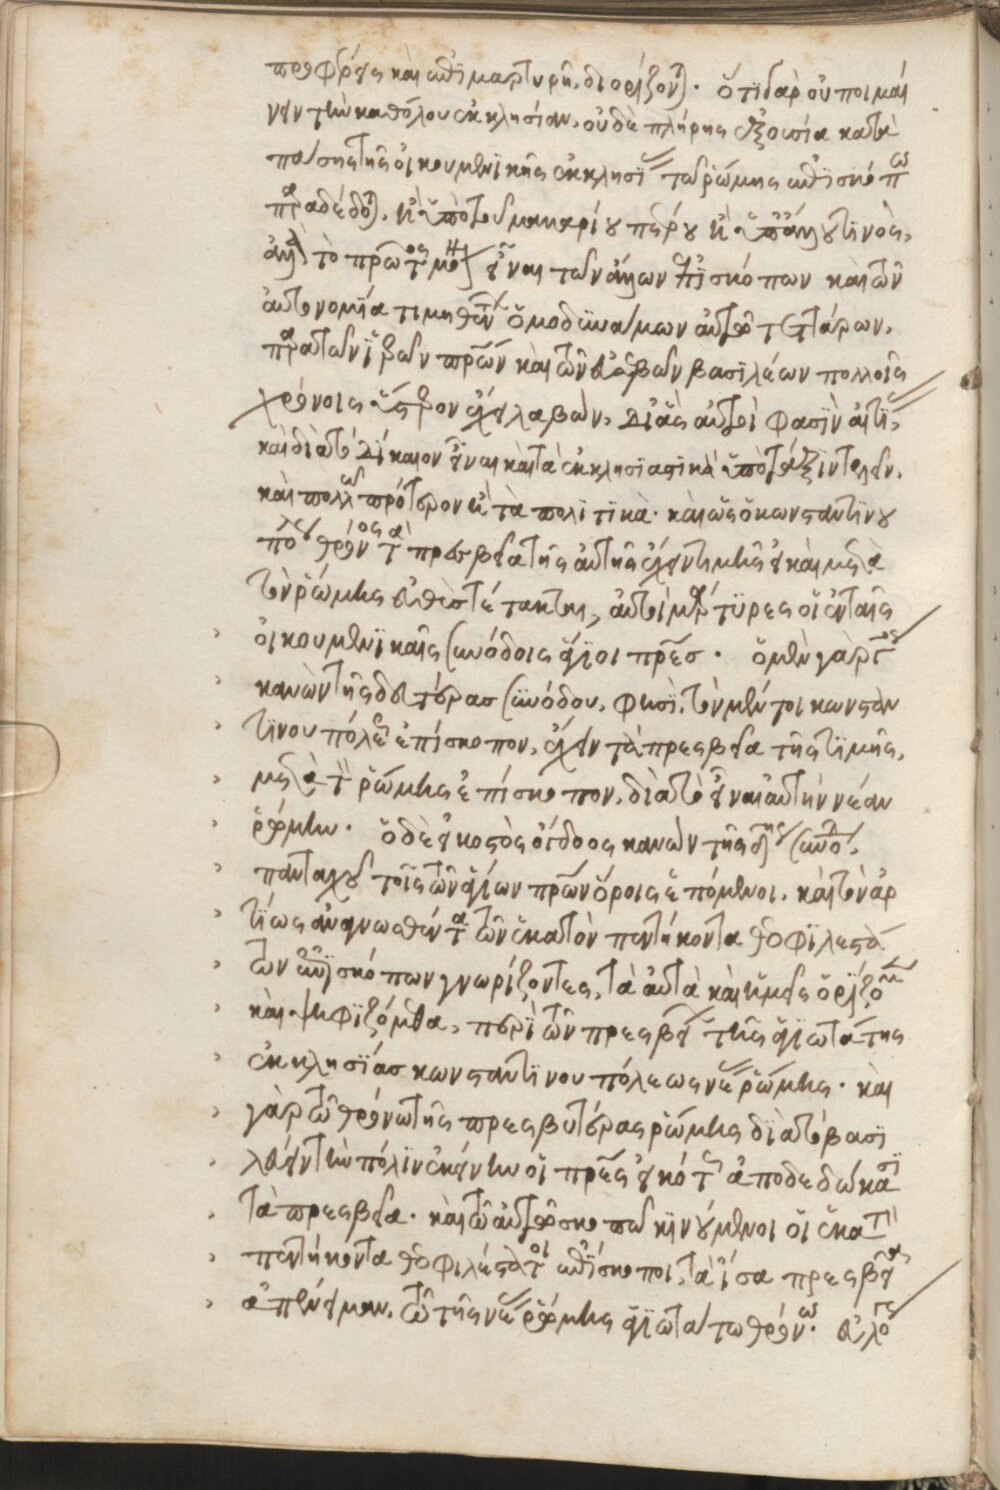 προφθρίας καὶ ἐπιμαρτυρεῖ, διορίζονται. ὅτι γὰρ οὐ ποιμαί
νειν τὴν καθόλου ἐκκλησίαν, οὐδὲ πλήρης ἐξουσία κατὰ
πάσης τῆς οἰκουμενικῆς ἐκκλησίας τῶ ῥώμης ἐπισκόπω
παραδέδοται, καὶ ὑπὸ τοῦ μακαρίου πέτρου καὶ ὑπ' ἄλλου τινὸς,
ἀλλὰ τὸ πρῶτος μόνον εἶναι τῶν ἄλλων ἐπισκόπων καὶ τῶν
αὐτονομία τιμηθέντων ὁμοδυνάμων αὐτῶ τεττάρων,
παρὰ τῶν θείων πατέρων καὶ τῶν εὐσεβῶν βασιλέων πολλοῖς
χρόνοις ὕστερον εἴληφε λαβὼν, δι' ἃς αὐτοί φασιν αἰτίας,
καὶ διὰ τὸ δίκαιον εἶναι καὶ τὰ ἐκκλησιαστικὰ ὑπὸ τάξιν τελεῖν,
καὶ πολλῶ πρότερον καὶ τὰ πολιτικά. καὶ ὡς ὁ κωνσταντίνου
πόλεως θρόνος τὰ πρεσβεῖα τῆς αὐτῆς ἔχειν τιμῆς εἰ καὶ μετὰ
τὸν ῥώμης εὐθὺς τέτακται, αὐτοὶ μάρτυρες οἱ ἐν ταῖς
οἰκουμενικαῖς συνόδοις ἅγιοι πατέρες. ὁ μὲν γὰρ τρίτος
κανὼν τῆς δευτέρας συνόδου, φησὶ, τὸν μέντοι κωνσταν
τίνου πόλεως ἐπίσκοπον, ἔχειν τὰ πρεσβεῖα τῆς τιμῆς,
μετὰ τὸν ῥώμης ἐπίσκοπον, διὰ τὸ εἶναι αὐτὴν νέαν
ῥώμην. ὁ δὲ εἰκοστὸς ὄγδοος κανὼν τῆς δʹ συνόδου,
πανταχοῦ τοῖς τῶν ἁγίων πατέρων ὅροις ἑπόμενοι, καὶ τὸν ἀρ
τίως ἀναγνωσθέντα τῶν ἑκατὸν πεντήκοντα θεοφιλεστά
των ἐπισκόπων γνωρίζοντες, τὰ αὐτὰ καὶ ἡμεῖς ὁρίζομεν
καὶ ψηφιζόμεθα, περὶ τῶν πρεσβείων τῆς ἁγιωτάτης
ἐκκλησίας κωνσταντίνου πόλεως νέας ῥώμης. καὶ
γὰρ τῶ θρόνω τῆς πρεσβυτέρας ῥώμης διὰ τὸ βασι
λεύειν τὴν πόλιν ἐκείνην οἱ πατέρες εἰκότως ἀποδεδώκασι
τὰ πρεσβεῖα. καὶ τῶ αὐτῶ σκοπῶ κινούμενοι οἱ ἑκατὸν
πεντήκοντα θεοφιλέστατοι ἐπίσκοποι, τὰ ἴσα πρεσβεῖα
ἀπένειμαν, τῶ τῆς νέας ῥώμης ἁγιωτάτω θρόνω. εὐλόγως